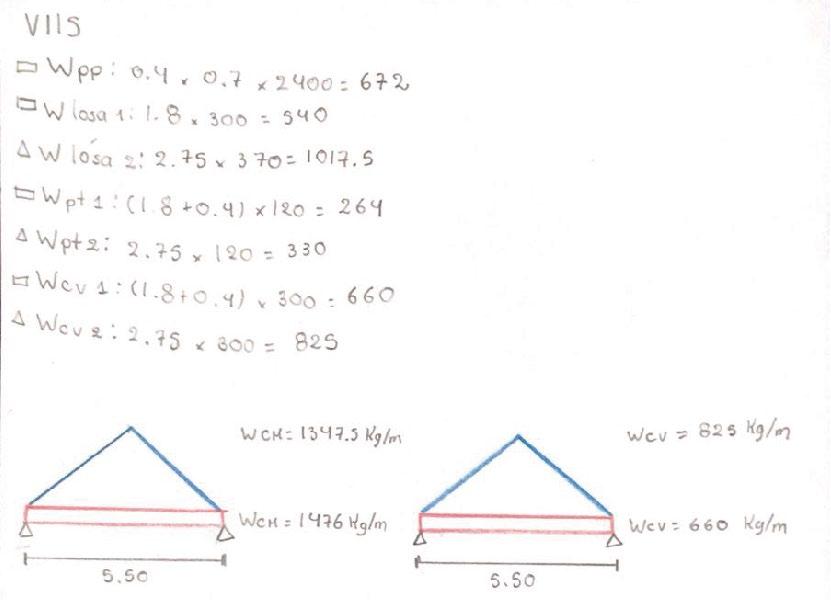 V115
▭ Wpp: 0.4 x 0.7 x 2400 = 672
▭ W losa 1: 1.8 x 300 = 540
Δ W lósa 2: 2.75 x 370 = 1017.5
▭ Wpt 1: (1.8 + 0.4) x 120 = 264
Δ Wpt 2: 2.75 x 120 = 330
▭ Wcv 1: (1.8 + 0.4) x 300 = 660
Δ Wcv 2: 2.75 x 300 = 825
WCM = 1347.5 Kg/m
WCM = 1476 Kg/m
5.50
WCV = 825 Kg/m
WCV = 660 Kg/m
5.50